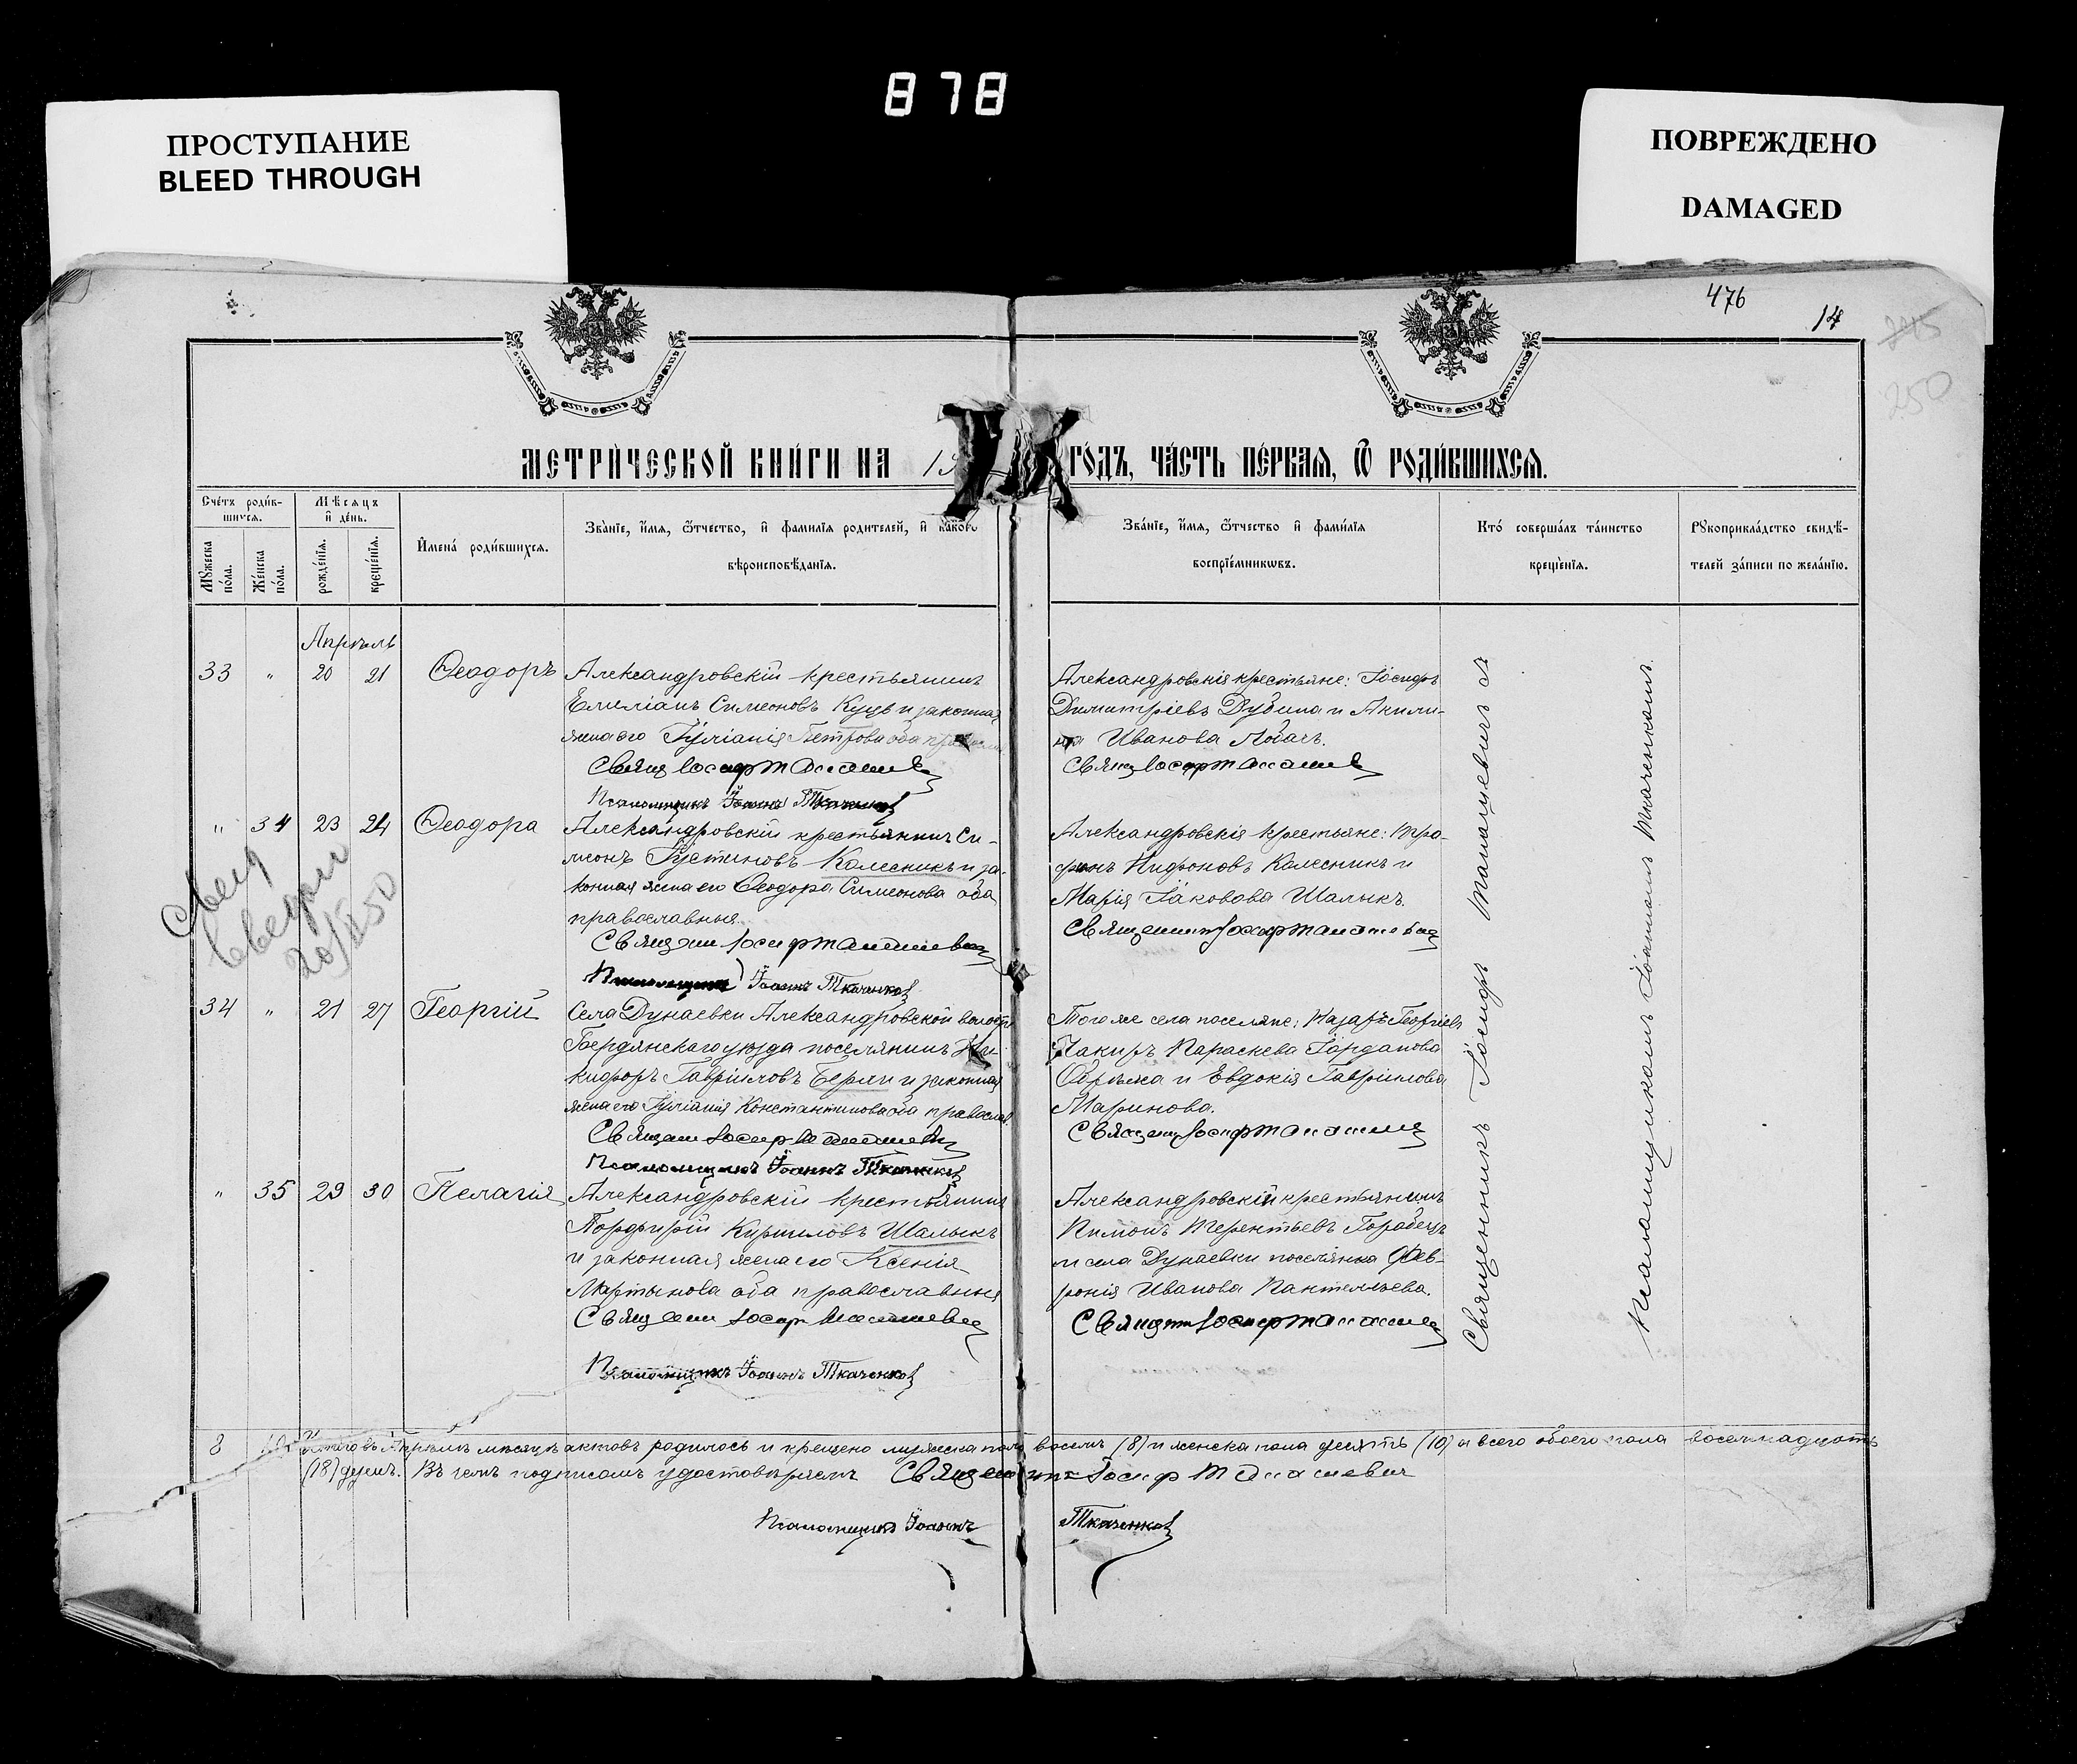 878
ПРОСТУПАНИЕ
BLEED THROUGH
ПОВРЕЖДЕНО
DAMAGED
476
14
250
МЕТРИЧЕСКОЙ КНИГИ НА
ГОДЪ, ЧАСТЬ ПЕРВАЯ, Ѿ РОДИВШИХСЯ.
Счетъ родив-
шихся.
Мѣсяцъ
и день.
Мужеска
пола.
Женска
пола.
рожденія.
крещенія.
Имена родившихся.
Званіе, имя, ѿтчество, и фамилія родителей, и какого
вѣроисповѣданія.
Званіе, имя, ѿтчество и фамилія
воспріемниковъ.
Кто совершалъ таинство
крещенія.
Рукоприкладство свидѣ-
телей записи по желанію.
Апрѣль
33 " 20 21 Ѳеодоръ
Александровскій крестьянинъ
Емиліанъ Симеоновъ Куцъ и законная
жена его Іуліанія Петрова оба
Священ Іосиф Танашев
Псаломщикъ Іоаннъ Ткаченко
Александровскія крестьяне: Іосифъ
Димитріевъ Дубина и Акили-
на Иванова Лобачъ.
Свящ Іосиф Танашев
" 34 23 24 Ѳеодора
Александровскій крестьянинъ Си-
меонъ Іустиновъ Колесникъ и за-
конная жена его Ѳеодора Симеонова оба
православныя.
Священ Іосиф Танашевич
Псаломщикъ Іоаннъ Ткаченко
Александровскія крестьяне: Тро-
фимъ Нифоновъ Колесникъ и
Марія Іаковова Шалыкъ.
Священник Іосиф Танашевич
34 " 21 27 Георгій
Села Дунаевки Александровской волости
Бердянскаго уѣзда поселянинъ Ни-
кифоръ Гавріиловъ Берли и законная
жена его Іуліанія Константинова оба православ.
Священ Іосиф Танашевич
Псаломщикъ Іоаннъ Ткаченко
Того же села поселяне: Назаръ Георгіевъ
Чакиръ Параскева Іорданова
и Евдокія Гавріилова
Маринова.
Священ Іосиф Танашев
" 35 29 30 Пелагія
Александровскій крестьянинъ
Порфирій Кирилловъ Шалыкъ
и законная жена его Ксенія
Мартынова оба православныя
Священ Іосиф Танашевич
Псаломщикъ Іоаннъ Ткаченко
Александровскій крестьянинъ
Пимонъ Терентьевъ Горобецъ
и села Дунаевки поселянка Фев-
ронія Иванова Пантелѣева.
Священ Іосиф Танашев
Священникъ Іосифъ Танашевичъ съ
Псаломщикомъ Іоанномъ Ткаченкомъ.
8 10 Итого въ Апрѣлѣ мѣсяцѣ актовъ родилось и крещено мужеска пола восемь (8) и женска пола десять (10) а всего обоего пола восемнадцать
(18) душъ. Въ чемъ подписомъ удостовѣряемъ Священникъ Іосиф Танашевич
Псаломщикъ Іоаннъ Ткаченко